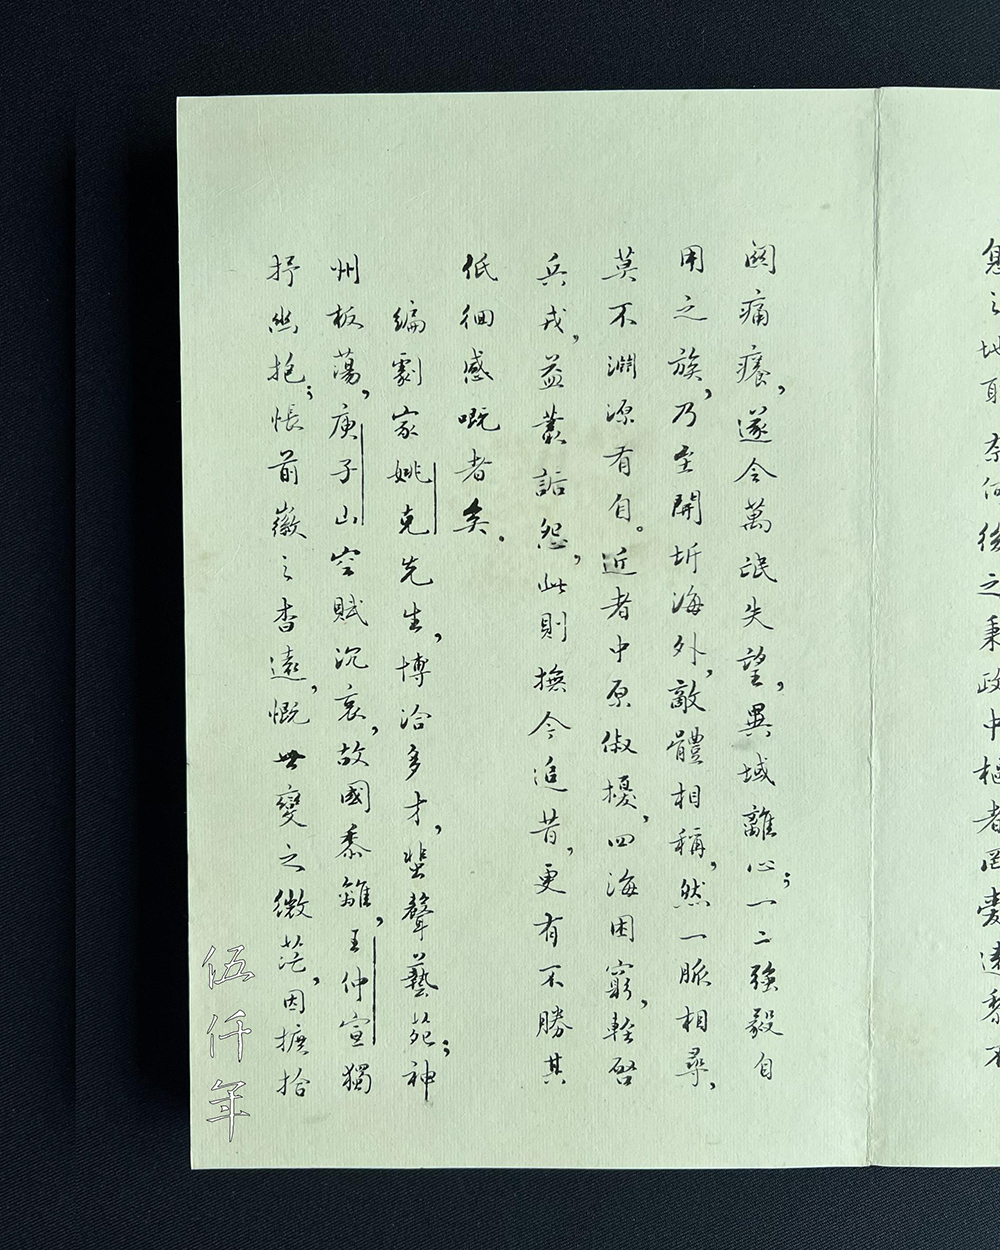 息之地耶奈何後之秉政中樞者罔處遠黎不
關痛癢，遂令萬氓失望，異域離心；一二強毅自
用之族，乃至開圻海外，敵體相稱，然一脈相尋，
莫不淵源有自。近者中原俶擾，四海困窮，輕啓
兵戎，益叢詬怨，此則撫今追昔，更有不勝其
低徊感嘅者矣．
編劇家姚克先生，博洽多才，蜚聲藝苑；神
州板蕩，庾子山空賦沉哀，故國黍離，王仲宣獨
抒幽抱；悵前徽之杳遠，慨世變之微茫，因摭拾
伍仟年